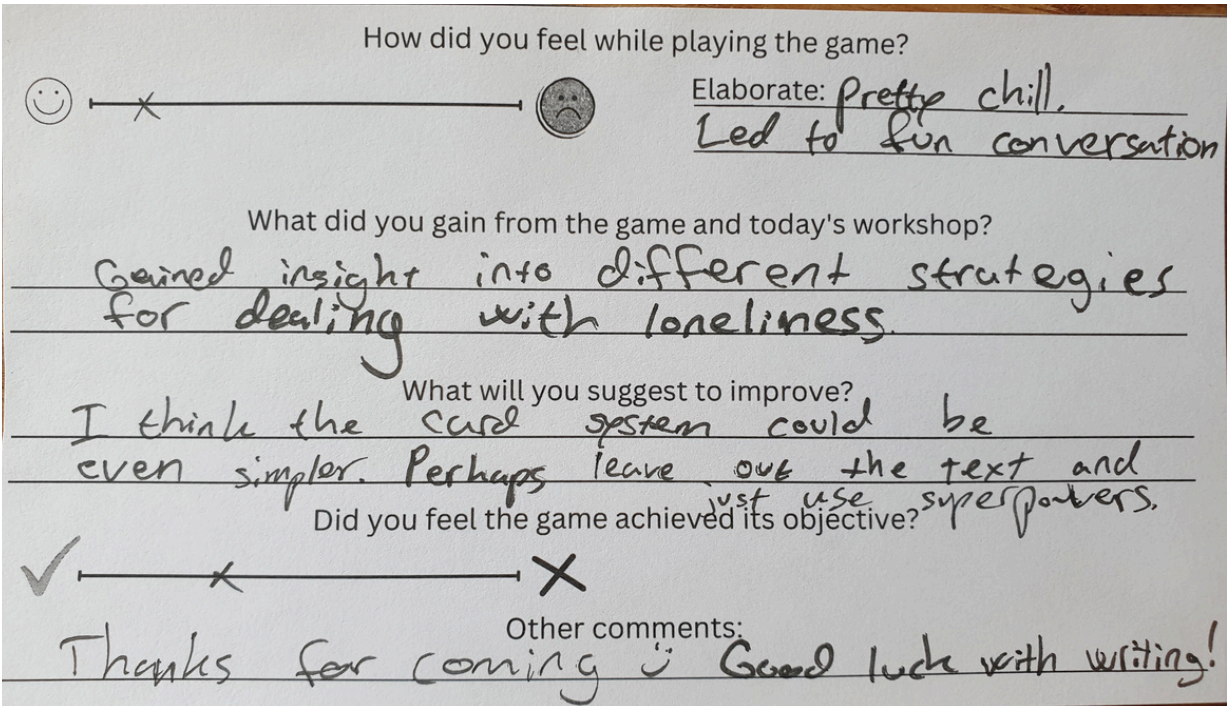 How did you feel while playing the game?
Elaborate: Pretty chill.
Led to fun conversation
What did you gain from the game and today's workshop?
Gained insight into different strategies
for dealing with loneliness.
What will you suggest to improve?
I think the card system could be
even simpler. Perhaps leave out the text and
just use superpowers.
Did you feel the game achieved its objective?
Other comments:
Thanks for coming Good luck with writing!